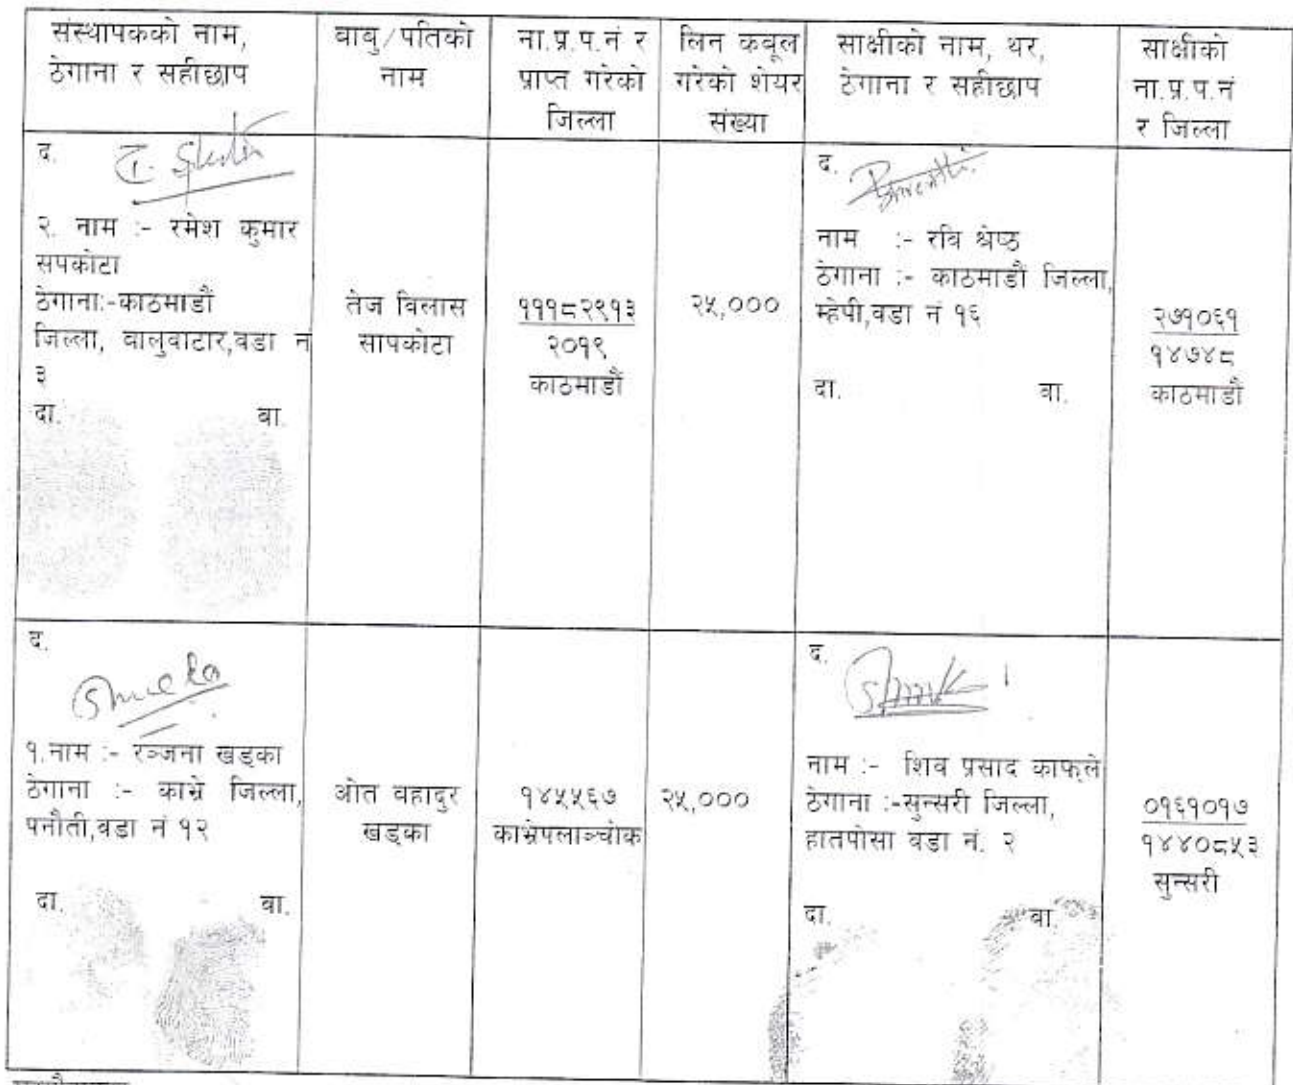 संस्थापकको नाम,
ठेगाना र सहीछाप
बाबु/पतिको
नाम
ना.प्र.प.नं र
प्राप्त गरेको
जिल्ला
लिन कबूल
गरेको शेयर
संख्या
साक्षीको नाम, थर,
ठेगाना र सहीछाप
साक्षीको
ना.प्र.प.नं
र जिल्ला
द.
२. नाम :- रमेश कुमार
सपकोटा
ठेगाना:-काठमाडौं
जिल्ला, वालुवाटार,वडा नं
३
दा. बा.
तेज विलास
सापकोटा
१११८२९१३
२०१९
काठमाडौं
२५,०००
द.
नाम :- रवि श्रेष्ठ
ठेगाना :- काठमाडौं जिल्ला,
म्हेपी,वडा नं १६
दा. वा.
२७१०६१
१४७४८
काठमाडौं
द.
१.नाम :- रञ्जना खड्का
ठेगाना :- काभ्रे जिल्ला,
पनौती,वडा नं १२
दा. वा.
ओत वहादुर
खड्का
१४५५६७
काभ्रेपलाञ्चोक
२५,०००
द.
नाम :- शिव प्रसाद काफ्ले
ठेगाना :-सुन्सरी जिल्ला,
हातपोसा वडा नं. २
दा. वा.
०१६१०१७
१४४०८५३
सुन्सरी